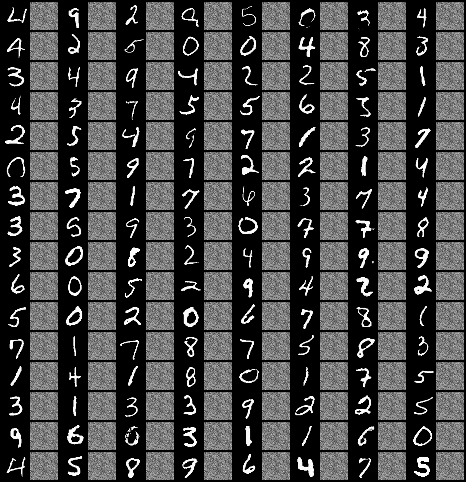 4 9 2 9 5 0 3 4
4 2 5 0 0 4 8 3
3 4 9 4 2 2 5 1
4 3 7 5 5 6 3 1
2 5 4 9 7 1 3 7
0 5 9 7 2 2 1 4
3 7 1 7 6 3 7 4
3 5 9 3 0 7 7 8
3 0 8 2 4 9 9 9
6 0 5 2 9 4 2 2
5 0 2 0 6 7 8 1
7 1 7 8 7 5 8 3
1 4 1 8 0 1 7 5
3 1 3 3 9 2 2 5
9 6 0 3 1 1 6 0
4 5 8 9 6 4 7 5